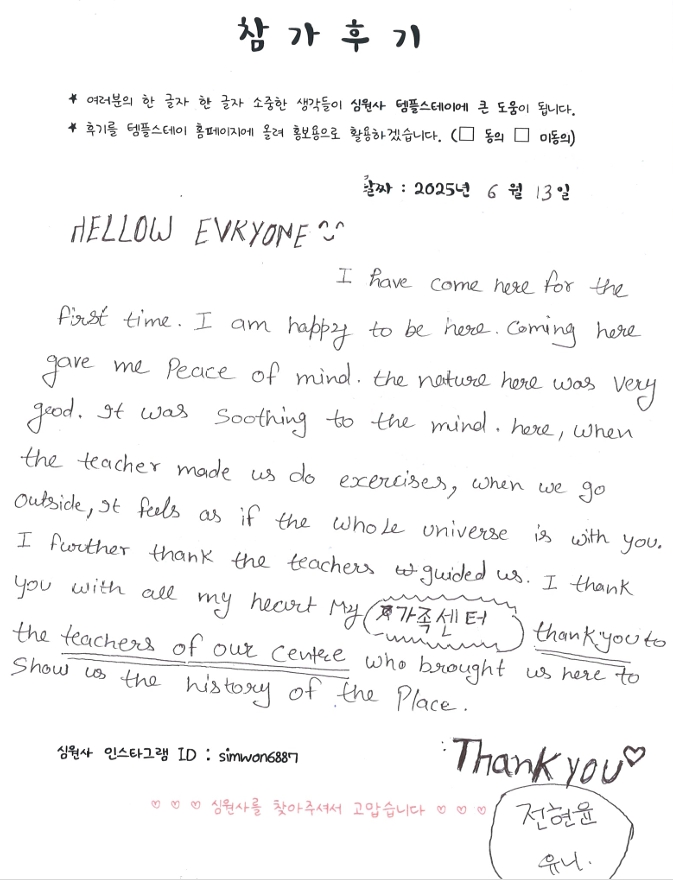 참 가 후 기
★ 여러분의 한 글자 한 글자 소중한 생각들이 심원사 템플스테이에 큰 도움이 됩니다.
★ 후기를 템플스테이 홈페이지에 올려 홍보용으로 활용하겠습니다. (□ 동의 □ 미동의)
날짜 : 2025년 6 월 13 일
HELLOW EVRYONE
I have come here for the
first time. I am happy to be here. Coming here
gave me Peace of mind. the nature here was very
good. It was soothing to the mind. here, when
the teacher made us do exercises, when we go
outside, It feels as if the whole universe is with you.
I further thank the teachers guided us. I thank
you with all my heart My 가족센터 thank you to
the teachers of our centre who brought us here to
Show us the history of the Place.
심원사 인스타그램 ID : simwon6887
Thank you ♡
♡ ♡ ♡ 심원사를 찾아주셔서 고맙습니다 ♡ ♡ ♡
전현윤
유니.